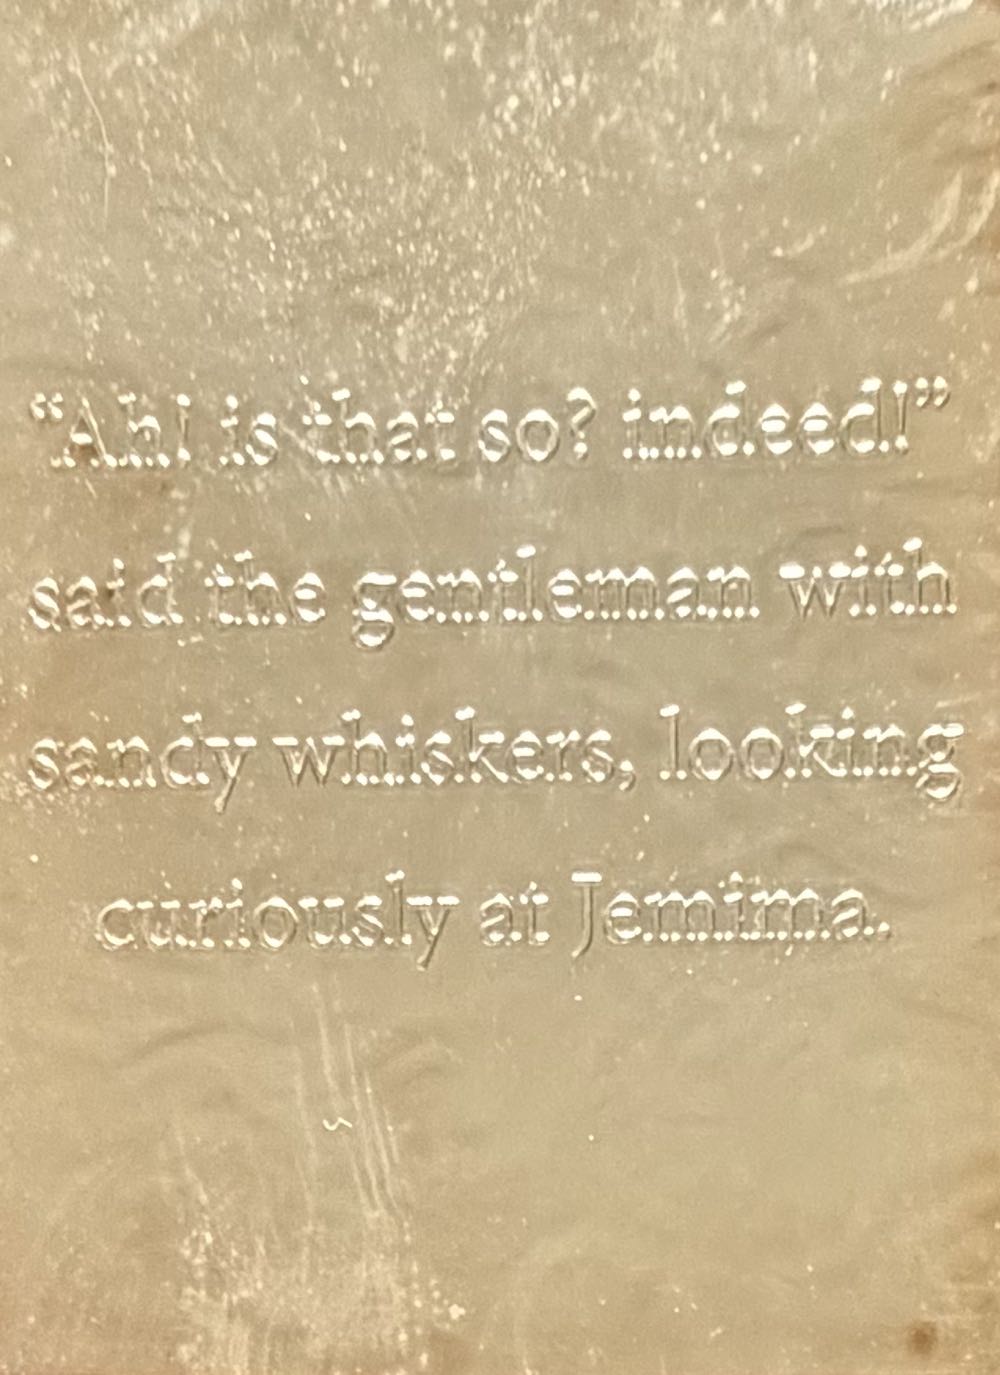 “Ah! is that so? indeed!”
said the gentleman with
sandy whiskers, looking
curiously at Jemima.